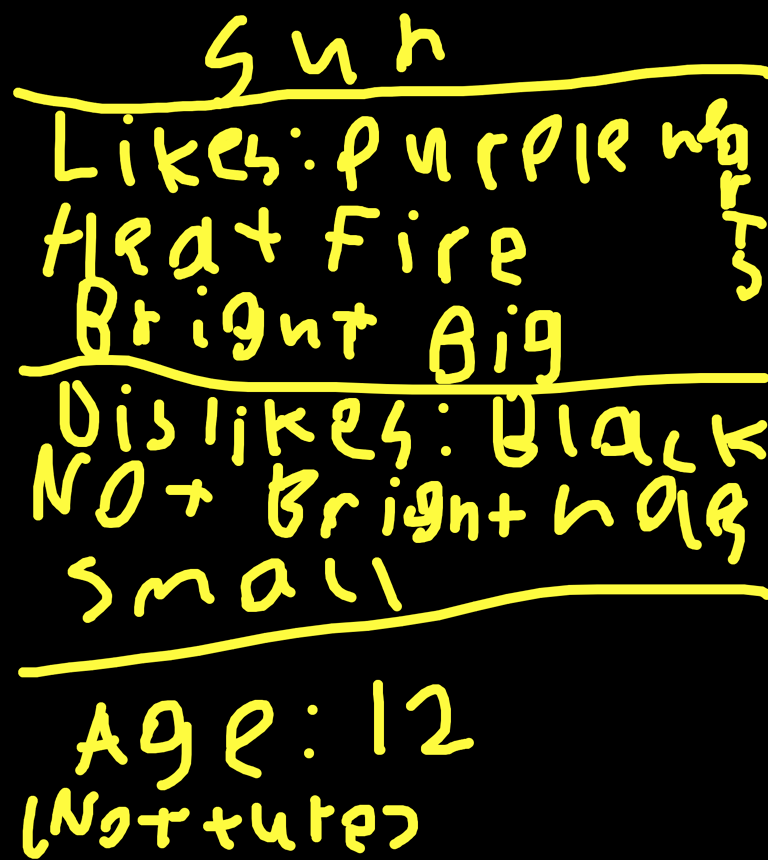 Sun
Likes: Purple hearTs
Heat Fire
Bright Big
Dislikes: Black
NOt Bright holes
small
Age: 12
(NoT ture)